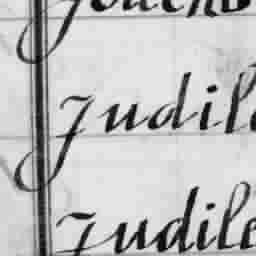 Judil
Judile